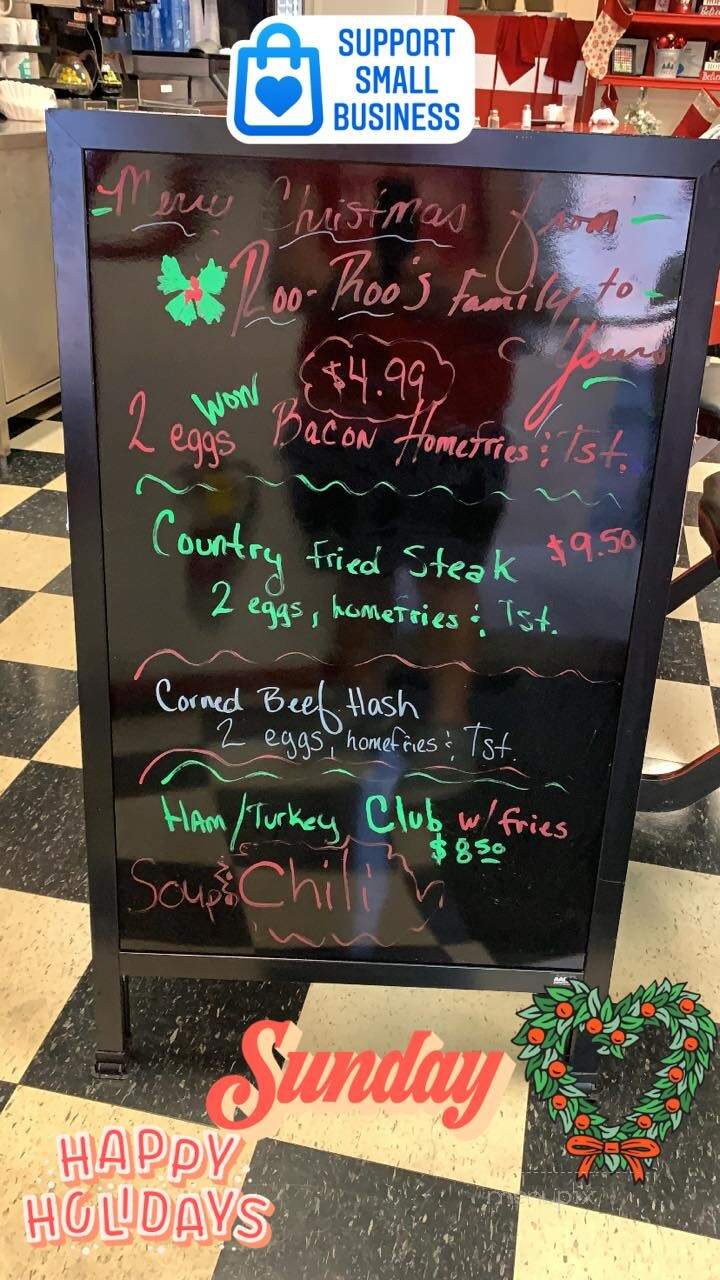 SUPPORT
SMALL
BUSINESS
Merry Christmas from
Roo-Roo's Family to
Yours
$4.99
WOW
2 eggs Bacon Homefries & Tst.
Country Fried Steak $9.50
2 eggs, homefries & Tst.
Corned Beef Hash
2 eggs, homefries & Tst.
HAM/Turkey Club w/fries
$8.50
Soup: Chili
Sunday
HAPPY
HOLIDAYS
menupix